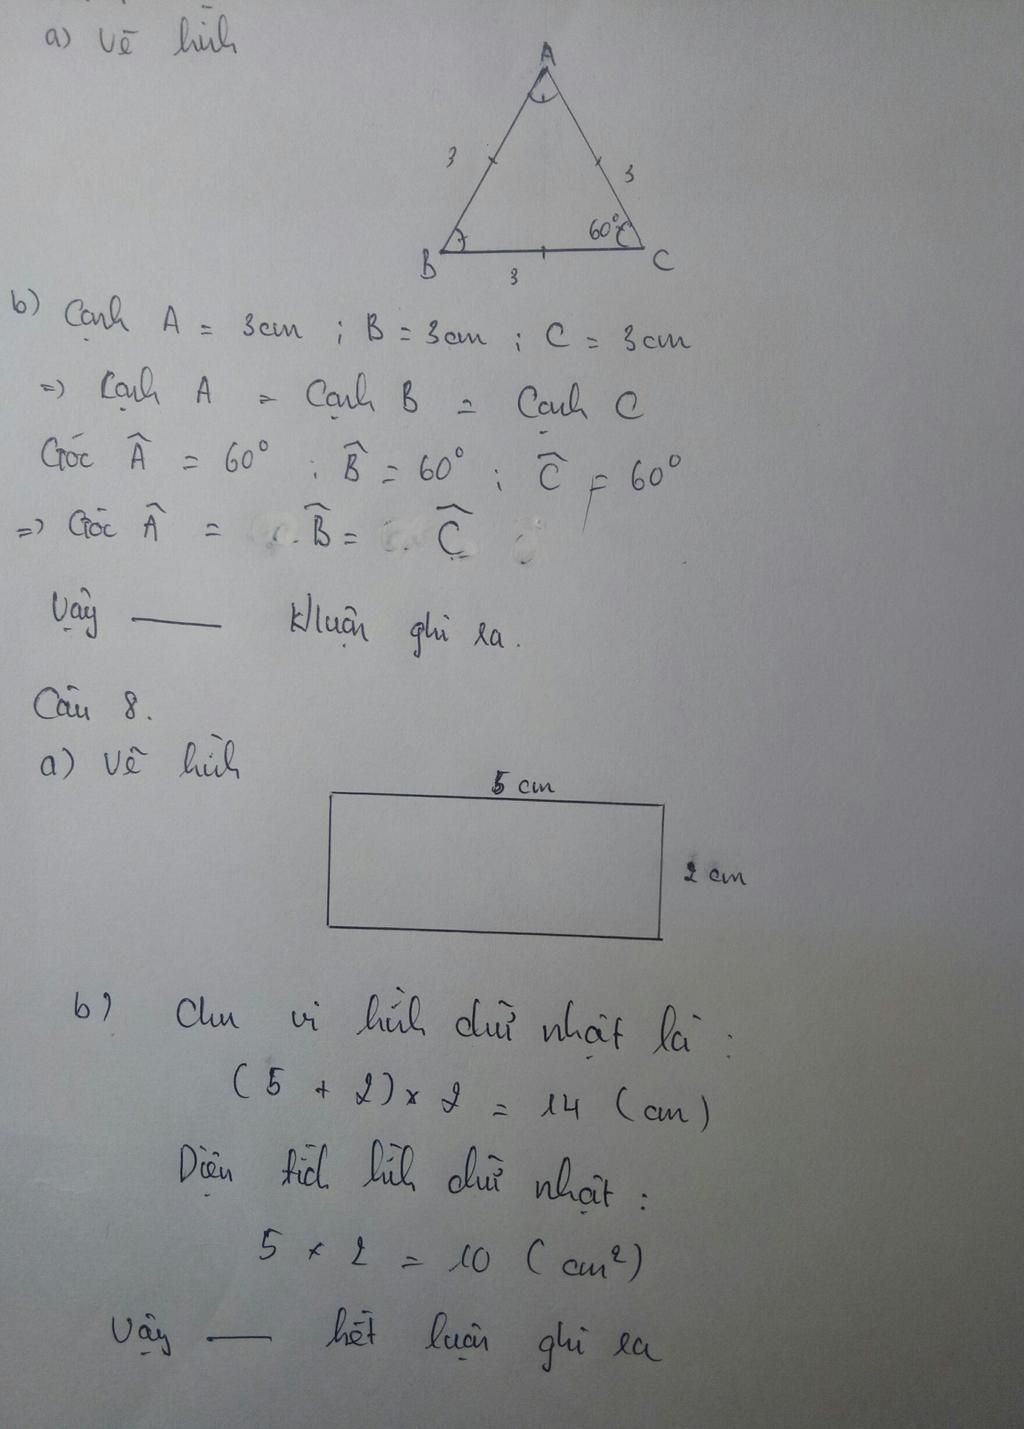 a) vẽ hình
A
3
3
60°
B
C
3
b) Cạnh A = 3cm ; B = 3cm ; C = 3cm
=> Cạnh A = Cạnh B = Cạnh C
Góc Â = 60° ; B̂ = 60° ; Ĉ = 60°
=> Góc Â = B̂ = Ĉ
Vậy —— K/luận ghi ra.
Câu 8.
a) vẽ hình
5 cm
2 cm
b) Chu vi hình chữ nhật là :
(5 + 2) × 2 = 14 (cm)
Diện tích hình chữ nhật :
5 × 2 = 10 (cm²)
Vậy —— kết luận ghi ra